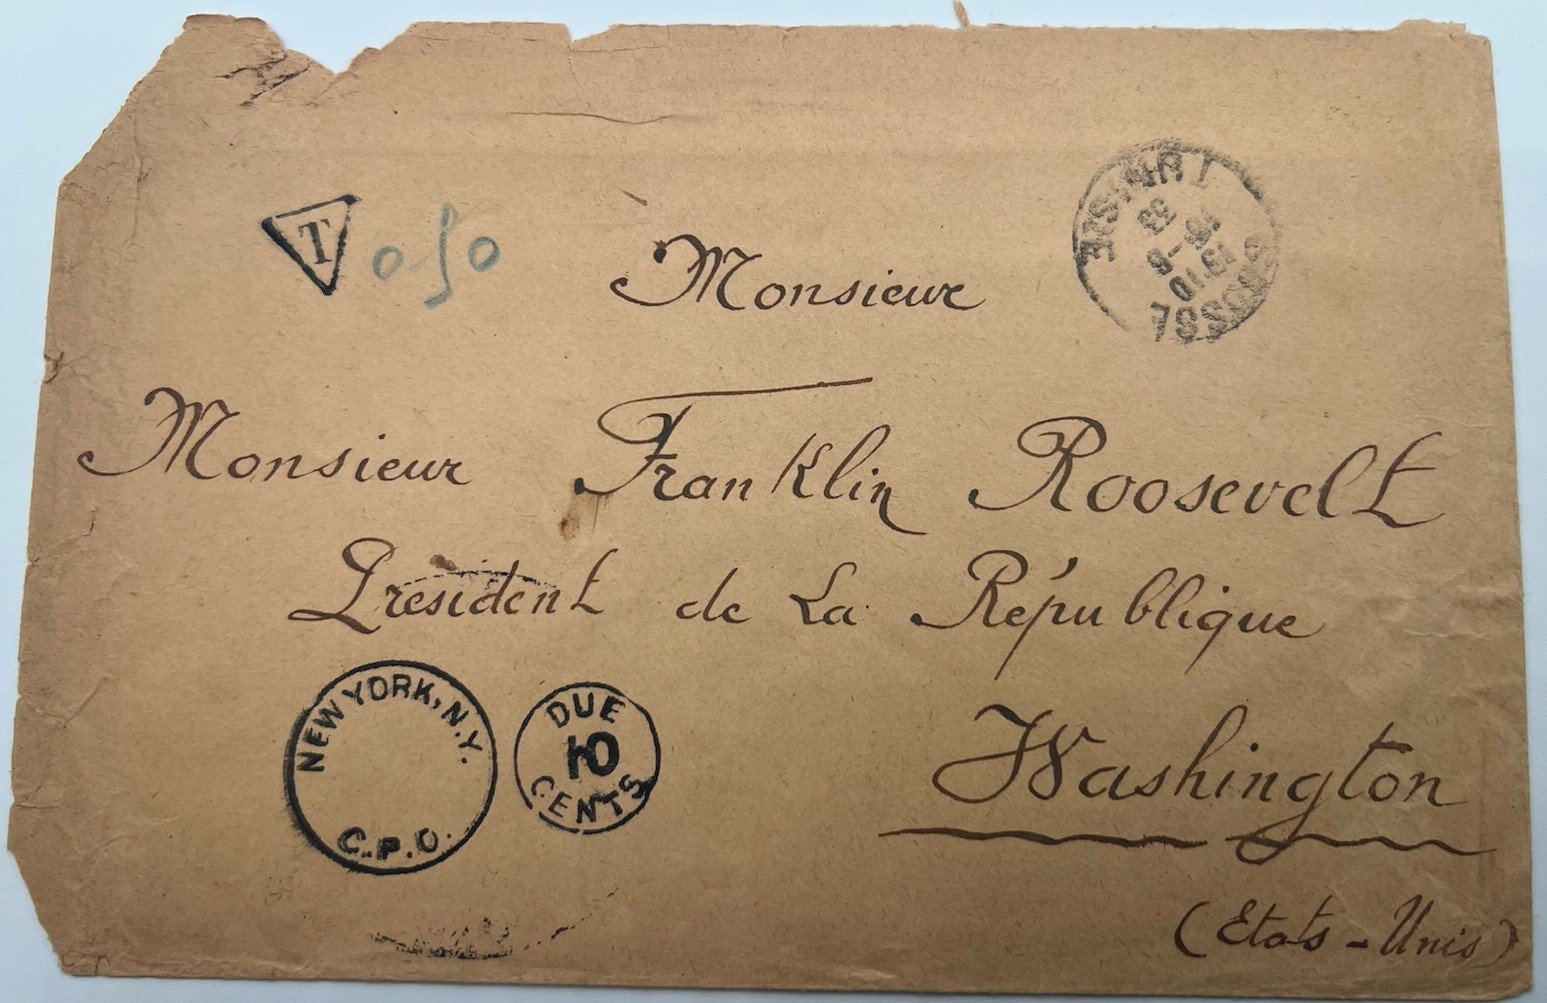 T
0 50
TUNISIE
18-6
33
1510
Monsieur
Monsieur Franklin Roosevelt
President de La République
Washington
(Etats-Unis)
NEW YORK, N.Y.
C.P.O.
DUE
10
CENTS